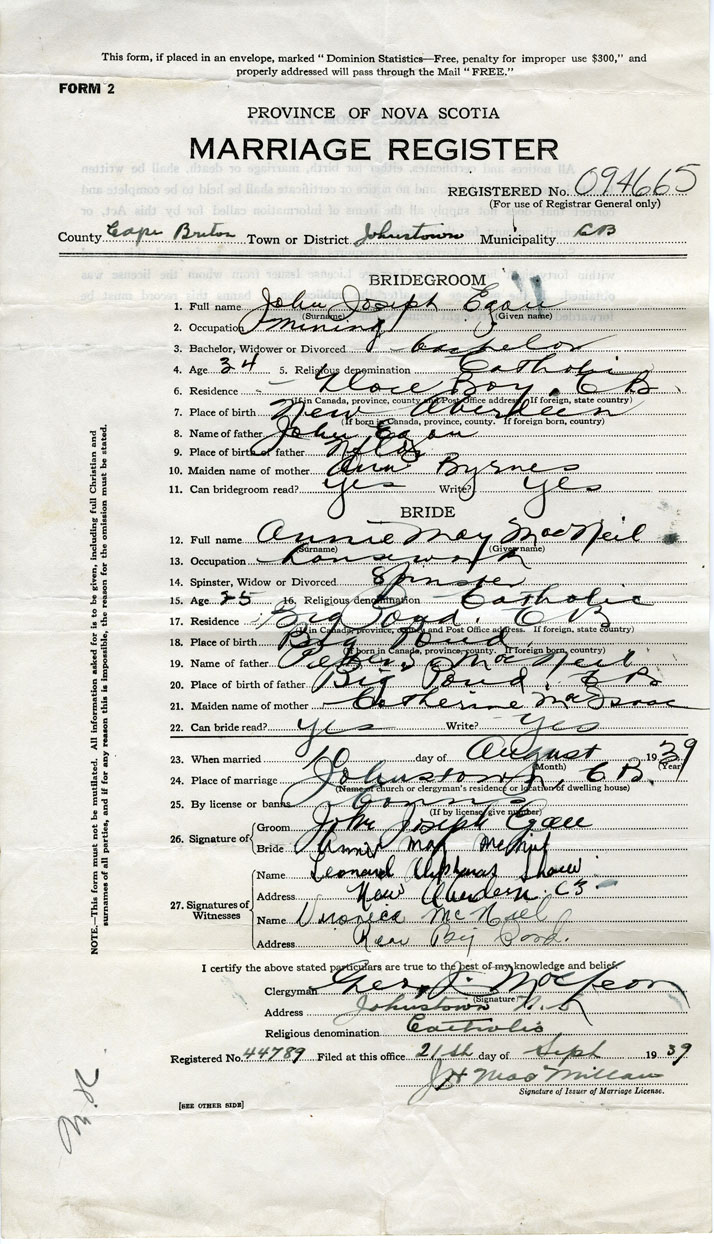 This form, if placed in an envelope, marked "Dominion Statistics—Free, penalty for improper use $300," and
properly addressed will pass through the Mail "FREE."
FORM 2
PROVINCE OF NOVA SCOTIA
MARRIAGE REGISTER
REGISTERED No. 094665
(For use of Registrar General only)
County Cape Breton Town or District Johnstown Municipality CB
BRIDEGROOM
1. Full name John Joseph Egan
(Surname) (Given name)
2. Occupation mining
3. Bachelor, Widower or Divorced bachelor
4. Age 34 5. Religious denomination Catholic
6. Residence Glace Bay, C B.
(If in Canada, province, county and Post Office address. If foreign, state country)
7. Place of birth New Aberdeen
(If born in Canada, province, county. If foreign born, country)
8. Name of father John Egan
9. Place of birth of father Nfld
10. Maiden name of mother Ann Byrnes
11. Can bridegroom read? yes Write? yes
BRIDE
12. Full name Annie May MacNeil
(Surname) (Given name)
13. Occupation housework
14. Spinster, Widow or Divorced Spinster
15. Age 25 16. Religious denomination Catholic
17. Residence Big Pond. C B
(If in Canada, province, county and Post Office address. If foreign, state country)
18. Place of birth Big Pond
(If born in Canada, province, county. If foreign born, country)
19. Name of father MacNeil
20. Place of birth of father Big Pond, CB.
21. Maiden name of mother Catherine MacIsaac
22. Can bride read? yes Write? yes
23. When married 10 day of August 1939
(Month) (Year)
24. Place of marriage Johnstown, C.B.
(Name of church or clergyman's residence or location of dwelling house)
25. By license or banns banns
(If by license, give number)
26. Signature of
Groom John Joseph Egan
Bride Annie May McNeil
27. Signatures of Witnesses
Name Leonard Alphonsus Shaw
Address New Aberdeen. CB
Name Veronica McNeil
Address Rear Big Pond.
I certify the above stated particulars are true to the best of my knowledge and belief.
Clergyman
(Signature)
Address Johnstown N.S
Religious denomination Catholic
Registered No. 44789 Filed at this office 21th day of Sept 1939
J H MacMillan
Signature of Issuer of Marriage License.
[SEE OTHER SIDE]
NOTE.—This form must not be mutilated. All information asked for is to be given, including full Christian and
surnames of all parties, and if for any reason this is impossible, the reason for the omission must be stated.